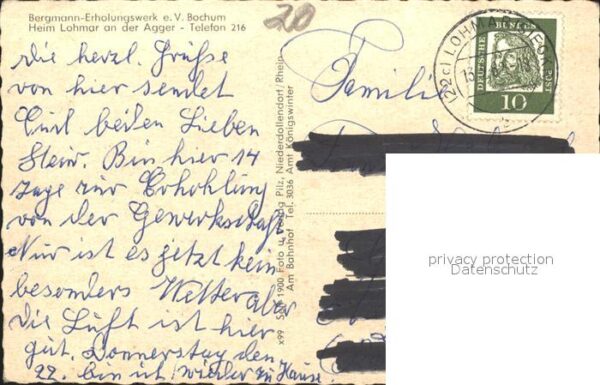 Bergmann-Erholungswerk e. V. Bochum
Heim Lohmar an der Agger - Telefon 216
20
die herzl. Grüße
von hier sendet
Euch beiden Lieben
Bin hier 14
Tage zur Erhohlung
von der Gewerkschaft
Nur ist es jetzt kein
besonders Wetter aber
die Luft ist hier
gut. Donnerstag den
22. bin ich wieder zu Hause.
x99 1900 Foto u. Verlag Pilz, Niederdollendorf/Rhein
Am Bahnhof Tel. 3036 Amt Königswinter
Familie
(22c) LOHMAR
DEUTSCHE BUNDESPOST
10
privacy protection
Datenschutz